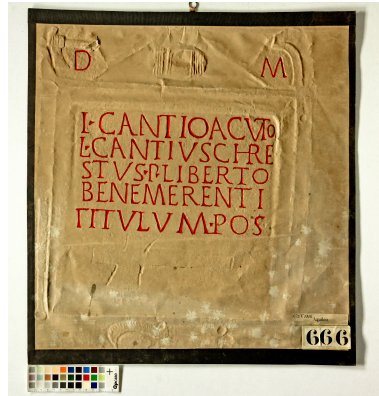 D M
L·CANTIO ACVTO
L·CANTIVS CHRE
STVS·P·LIBERTO
BENEMERENTI
TITVLVM·POS
666